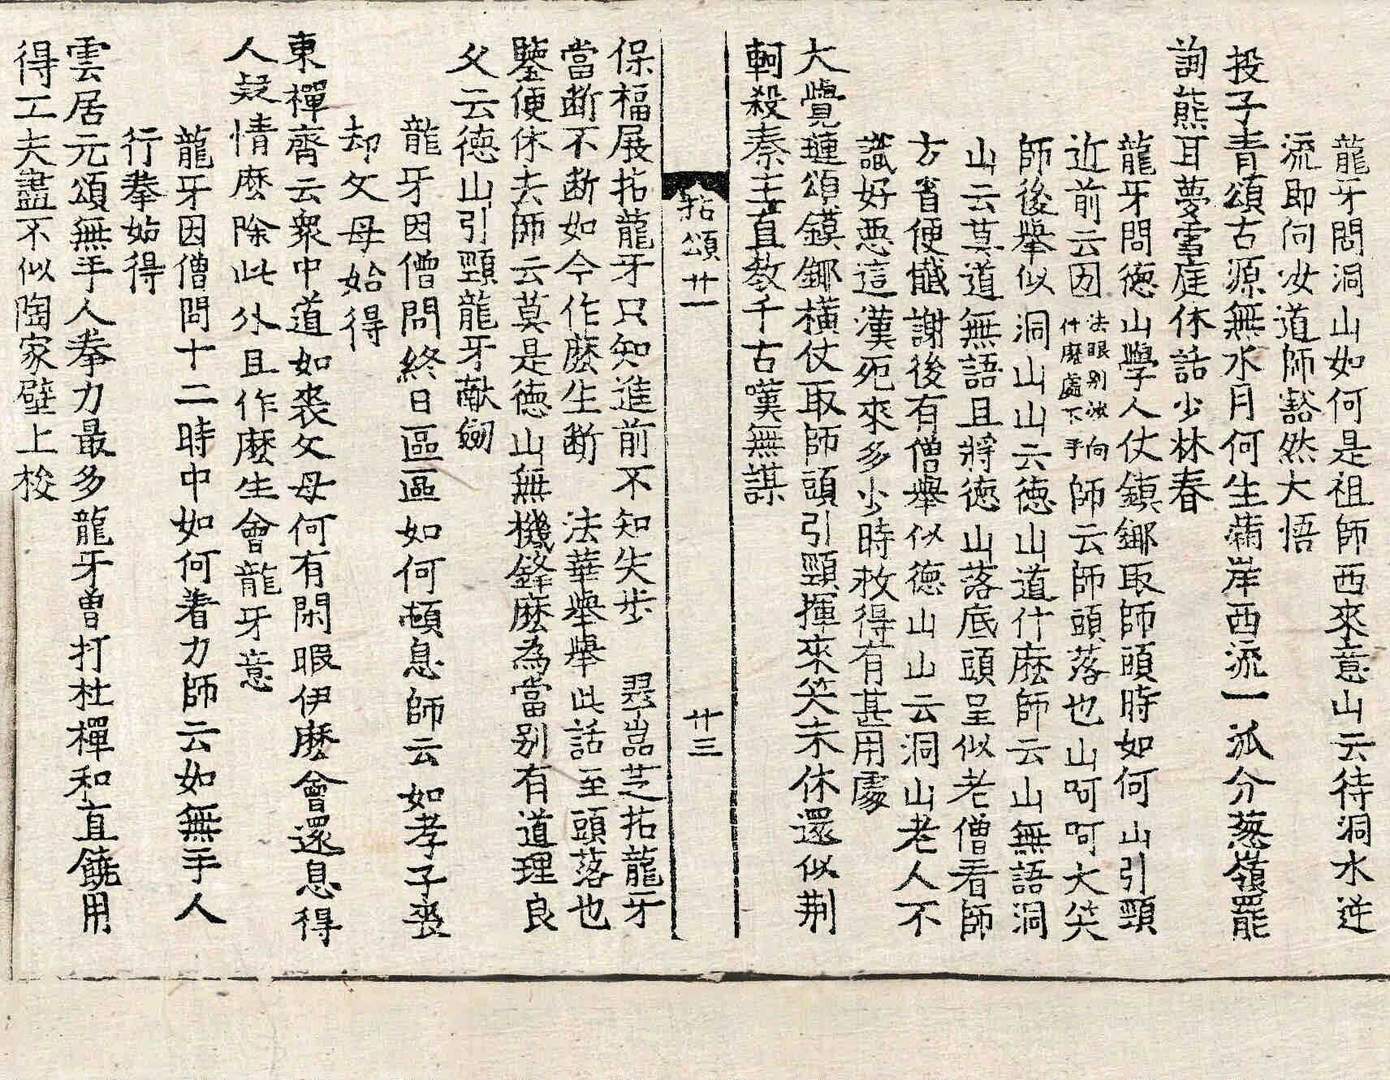 龍牙問洞山如何是祖師西來意山云待洞水逆
流即向汝道師豁然大悟
投子青頌古源無水月何生滿岸西流一派分葱嶺罷
詢熊耳夢雪庭休話少林春
龍牙問德山學人仗鏌鎁取師頭時如何山引頸
近前云㘞法眼別汝向什麽處下手師云師頭落也山呵呵大笑
師後舉似洞山山云德山道什麽師云山無語洞
山云莫道無語且將德山落底頭呈似老僧看師
方省便懺謝後有僧舉似德山山云洞山老人不
識好惡這漢死來多少時救得有甚用處
大覺璉頌鏌鎁橫仗取師頭引頸揮來笑未休還似荆
軻殺秦主直教千古嘆無謀
拈頌廿一
廿三
保福展拈龍牙只知進前不知失步 瑯琊覺拈龍牙
當斷不斷如今作麽生斷 法華舉舉此話至頭落也
鑒便休去師云莫是德山無機鋒麽為當別有道理良
父云德山引頸龍牙献劒
龍牙因僧問終日區區如何頓息師云如孝子喪
却父母始得
東禪齊云衆中道如喪父母何有閑暇伊麽會還息得
人疑情麽除此外且作麽生會龍牙意
龍牙因僧問十二時中如何着力師云如無手人
行拳始得
雲居元頌無手人拳力最多龍牙曾打杜禪和直饒用
得工夫盡不似陶家壁上梭